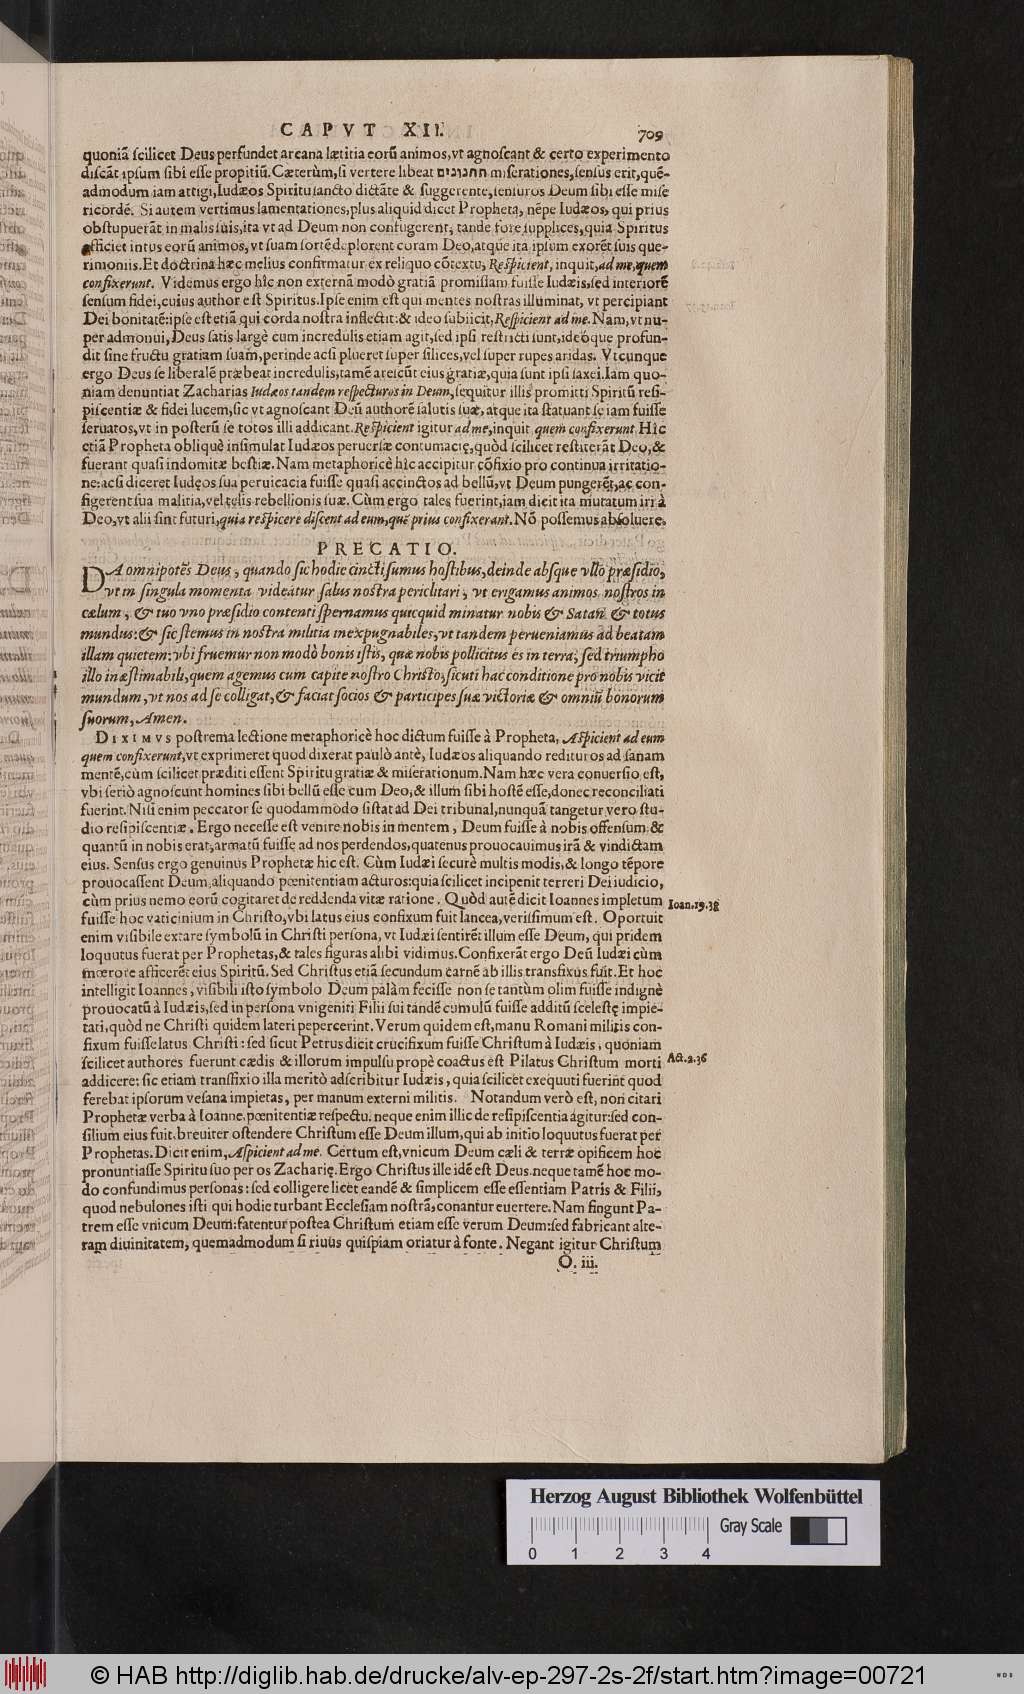 CAPVT XII. 709
quoniā ſcilicet Deus perfundet arcana lætitia eorū animos, vt agnoſcant & certo experimento
diſcāt ipſum ſibi eſſe propitiū. Cæterùm, ſi vertere libeat תחנונים miſerationes, ſenſus erit, quē-
admodum iam attigi, Iudæos Spiritu ſancto dictāte & ſuggerente, ſenſuros Deum ſibi eſſe miſe
ricordē. Si autem vertimus lamentationes, plus aliquid dicet Propheta, nēpe Iudæos, qui prius
obſtupuerāt in malis ſuis, ita vt ad Deum non confugerent, tandē fore ſupplices, quia Spiritus
afficiet intus eorū animos, vt ſuam ſortē deplorent coram Deo, atque ita ipſum exorēt ſuis que-
rimoniis. Et doctrina hæc melius confirmatur ex reliquo cōtextu, Reſpicient, inquit, ad me, quem
confixerunt. Videmus ergo hîc non externā modò gratiā promiſſam fuiſſe Iudæis, ſed interiorē
ſenſum fidei, cuius author eſt Spiritus. Ipſe enim eſt qui mentes noſtras illuminat, vt percipiant
Dei bonitatē: ipſe eſt etiā qui corda noſtra inflectit: & ideo ſubiicit, Reſpicient ad me. Nam, vt nu-
per admonui, Deus ſatis largè cum incredulis etiam agit, ſed ipſi reſtricti ſunt, ideoque profun-
dit ſine fructu gratiam ſuam, perinde acſi plueret ſuper ſilices, vel ſuper rupes aridas. Vtcunque
ergo Deus ſe liberalē præbeat incredulis, tamē areſcūt eius gratiæ, quia ſunt ipſi ſaxei. Iam quo-
niam denuntiat Zacharias Iudæos tandem reſpecturos in Deum, ſequitur illis promitti Spiritū reſi-
piſcentiæ & fidei lucem, ſic vt agnoſcant Deū authorē ſalutis ſuæ, atque ita ſtatuant ſe iam fuiſſe
ſeruatos, vt in poſterū ſe totos illi addicant. Reſpicient igitur ad me, inquit quem confixerunt Hîc
etiā Propheta obliquè inſimulat Iudæos peruerſæ contumacię, quòd ſcilicet reſtiterāt Deo, &
fuerant quaſi indomitæ beſtiæ. Nam metaphoricè hîc accipitur cōfixio pro continua irritatio-
ne: acſi diceret Iudęos ſua peruicacia fuiſſe quaſi accinctos ad bellū, vt Deum pungerēt, ac con-
figerent ſua malitia, vel telis rebellionis ſuæ. Cùm ergo tales fuerint, iam dicit ita mutatum iri à
Deo, vt alii ſint futuri, quia reſpicere diſcent ad eum, quē prius confixerant. Nō poſſemus abſoluere.
PRECATIO.
DA omnipotēs Deus, quando ſic hodie cincti ſumus hoſtibus, deinde abſque vllo præſidio,
vt in ſingula momenta videatur ſalus noſtra periclitari, vt erigamus animos noſtros in
cælum, & tuo vno præſidio contenti ſpernamus quicquid minatur nobis & Satan & totus
mundus: & ſic ſtemus in noſtra militia inexpugnabiles, vt tandem perueniamus ad beatam
illam quietem: vbi fruemur non modò bonis iſtis, quæ nobis pollicitus es in terra, ſed triumpho
illo inæſtimabili, quem agemus cum capite noſtro Chriſto, ſicuti hac conditione pro nobis vicit
mundum, vt nos ad ſe colligat, & faciat ſocios & participes ſuæ victoriæ & omniū bonorum
ſuorum, Amen.
DIXIMVS poſtrema lectione metaphoricè hoc dictum fuiſſe à Propheta, Aſpicient ad eum
quem confixerunt, vt exprimeret quod dixerat paulò antè, Iudæos aliquando redituros ad ſanam
mentē, cùm ſcilicet præditi eſſent Spiritu gratiæ & miſerationum. Nam hæc vera conuerſio eſt,
vbi ſeriò agnoſcunt homines ſibi bellū eſſe cum Deo, & illum ſibi hoſtē eſſe, donec reconciliati
fuerint. Niſi enim peccator ſe quodammodo ſiſtat ad Dei tribunal, nunquā tangetur vero ſtu-
dio reſipiſcentiæ. Ergo neceſſe eſt venire nobis in mentem, Deum fuiſſe à nobis offenſum: &
quantū in nobis erat, armatū fuiſſe ad nos perdendos, quatenus prouocauimus irā & vindictam
eius. Senſus ergo genuinus Prophetæ hic eſt. Cùm Iudæi ſecurè multis modis, & longo tēpore
prouocaſſent Deum, aliquando pœnitentiam acturos: quia ſcilicet incipient terreri Dei iudicio,
cùm prius nemo eorū cogitaret de reddenda vitæ ratione. Quòd autē dicit Ioannes impletum
Ioan. 19. 38
fuiſſe hoc vaticinium in Chriſto, vbi latus eius confixum fuit lancea, veriſſimum eſt. Oportuit
enim viſibile extare ſymbolū in Chriſti perſona, vt Iudæi ſentirēt illum eſſe Deum, qui pridem
loquutus fuerat per Prophetas, & tales figuras alibi vidimus. Confixerāt ergo Deū Iudæi cùm
mœrore afficerēt eius Spiritū. Sed Chriſtus etiā ſecundum carnē ab illis transfixus fuit. Et hoc
intelligit Ioannes, viſibili iſto ſymbolo Deum palàm feciſſe non ſe tantùm olim fuiſſe indignè
prouocatū à Iudæis, ſed in perſona vnigeniti Filii ſui tandē cumulū fuiſſe additū ſceleſtę impie-
tati, quòd ne Chriſti quidem lateri pepercerint. Verum quidem eſt, manu Romani militis con-
fixum fuiſſe latus Chriſti: ſed ſicut Petrus dicit crucifixum fuiſſe Chriſtum à Iudæis, quoniam
ſcilicet authores fuerunt cædis & illorum impulſu propè coactus eſt Pilatus Chriſtum morti
Act. 2. 36
addicere: ſic etiam transfixio illa meritò adſcribitur Iudæis, quia ſcilicet exequuti fuerint quod
ferebat ipſorum veſana impietas, per manum externi militis. Notandum verò eſt, non citari
Prophetæ verba à Ioanne, pœnitentiæ reſpectu. neque enim illic de reſipiſcentia agitur: ſed con-
ſilium eius fuit. breuiter oſtendere Chriſtum eſſe Deum illum, qui ab initio loquutus fuerat per
Prophetas. Dicit enim, Aſpicient ad me. Certum eſt, vnicum Deum cæli & terræ opificem hoc
pronuntiaſſe Spiritu ſuo per os Zacharię. Ergo Chriſtus ille idē eſt Deus. neque tamē hoc mo-
do confundimus perſonas: ſed colligere licet eandē & ſimplicem eſſe eſſentiam Patris & Filii,
quod nebulones iſti qui hodie turbant Eccleſiam noſtrā, conantur euertere. Nam fingunt Pa-
trem eſſe vnicum Deum: fatentur poſtea Chriſtum etiam eſſe verum Deum: ſed fabricant alte-
ram diuinitatem, quemadmodum ſi riuus quiſpiam oriatur à fonte. Negant igitur Chriſtum
O. iii.
Herzog August Bibliothek Wolfenbüttel
Gray Scale
0 1 2 3 4
© HAB http://diglib.hab.de/drucke/alv-ep-297-2s-2f/start.htm?image=00721